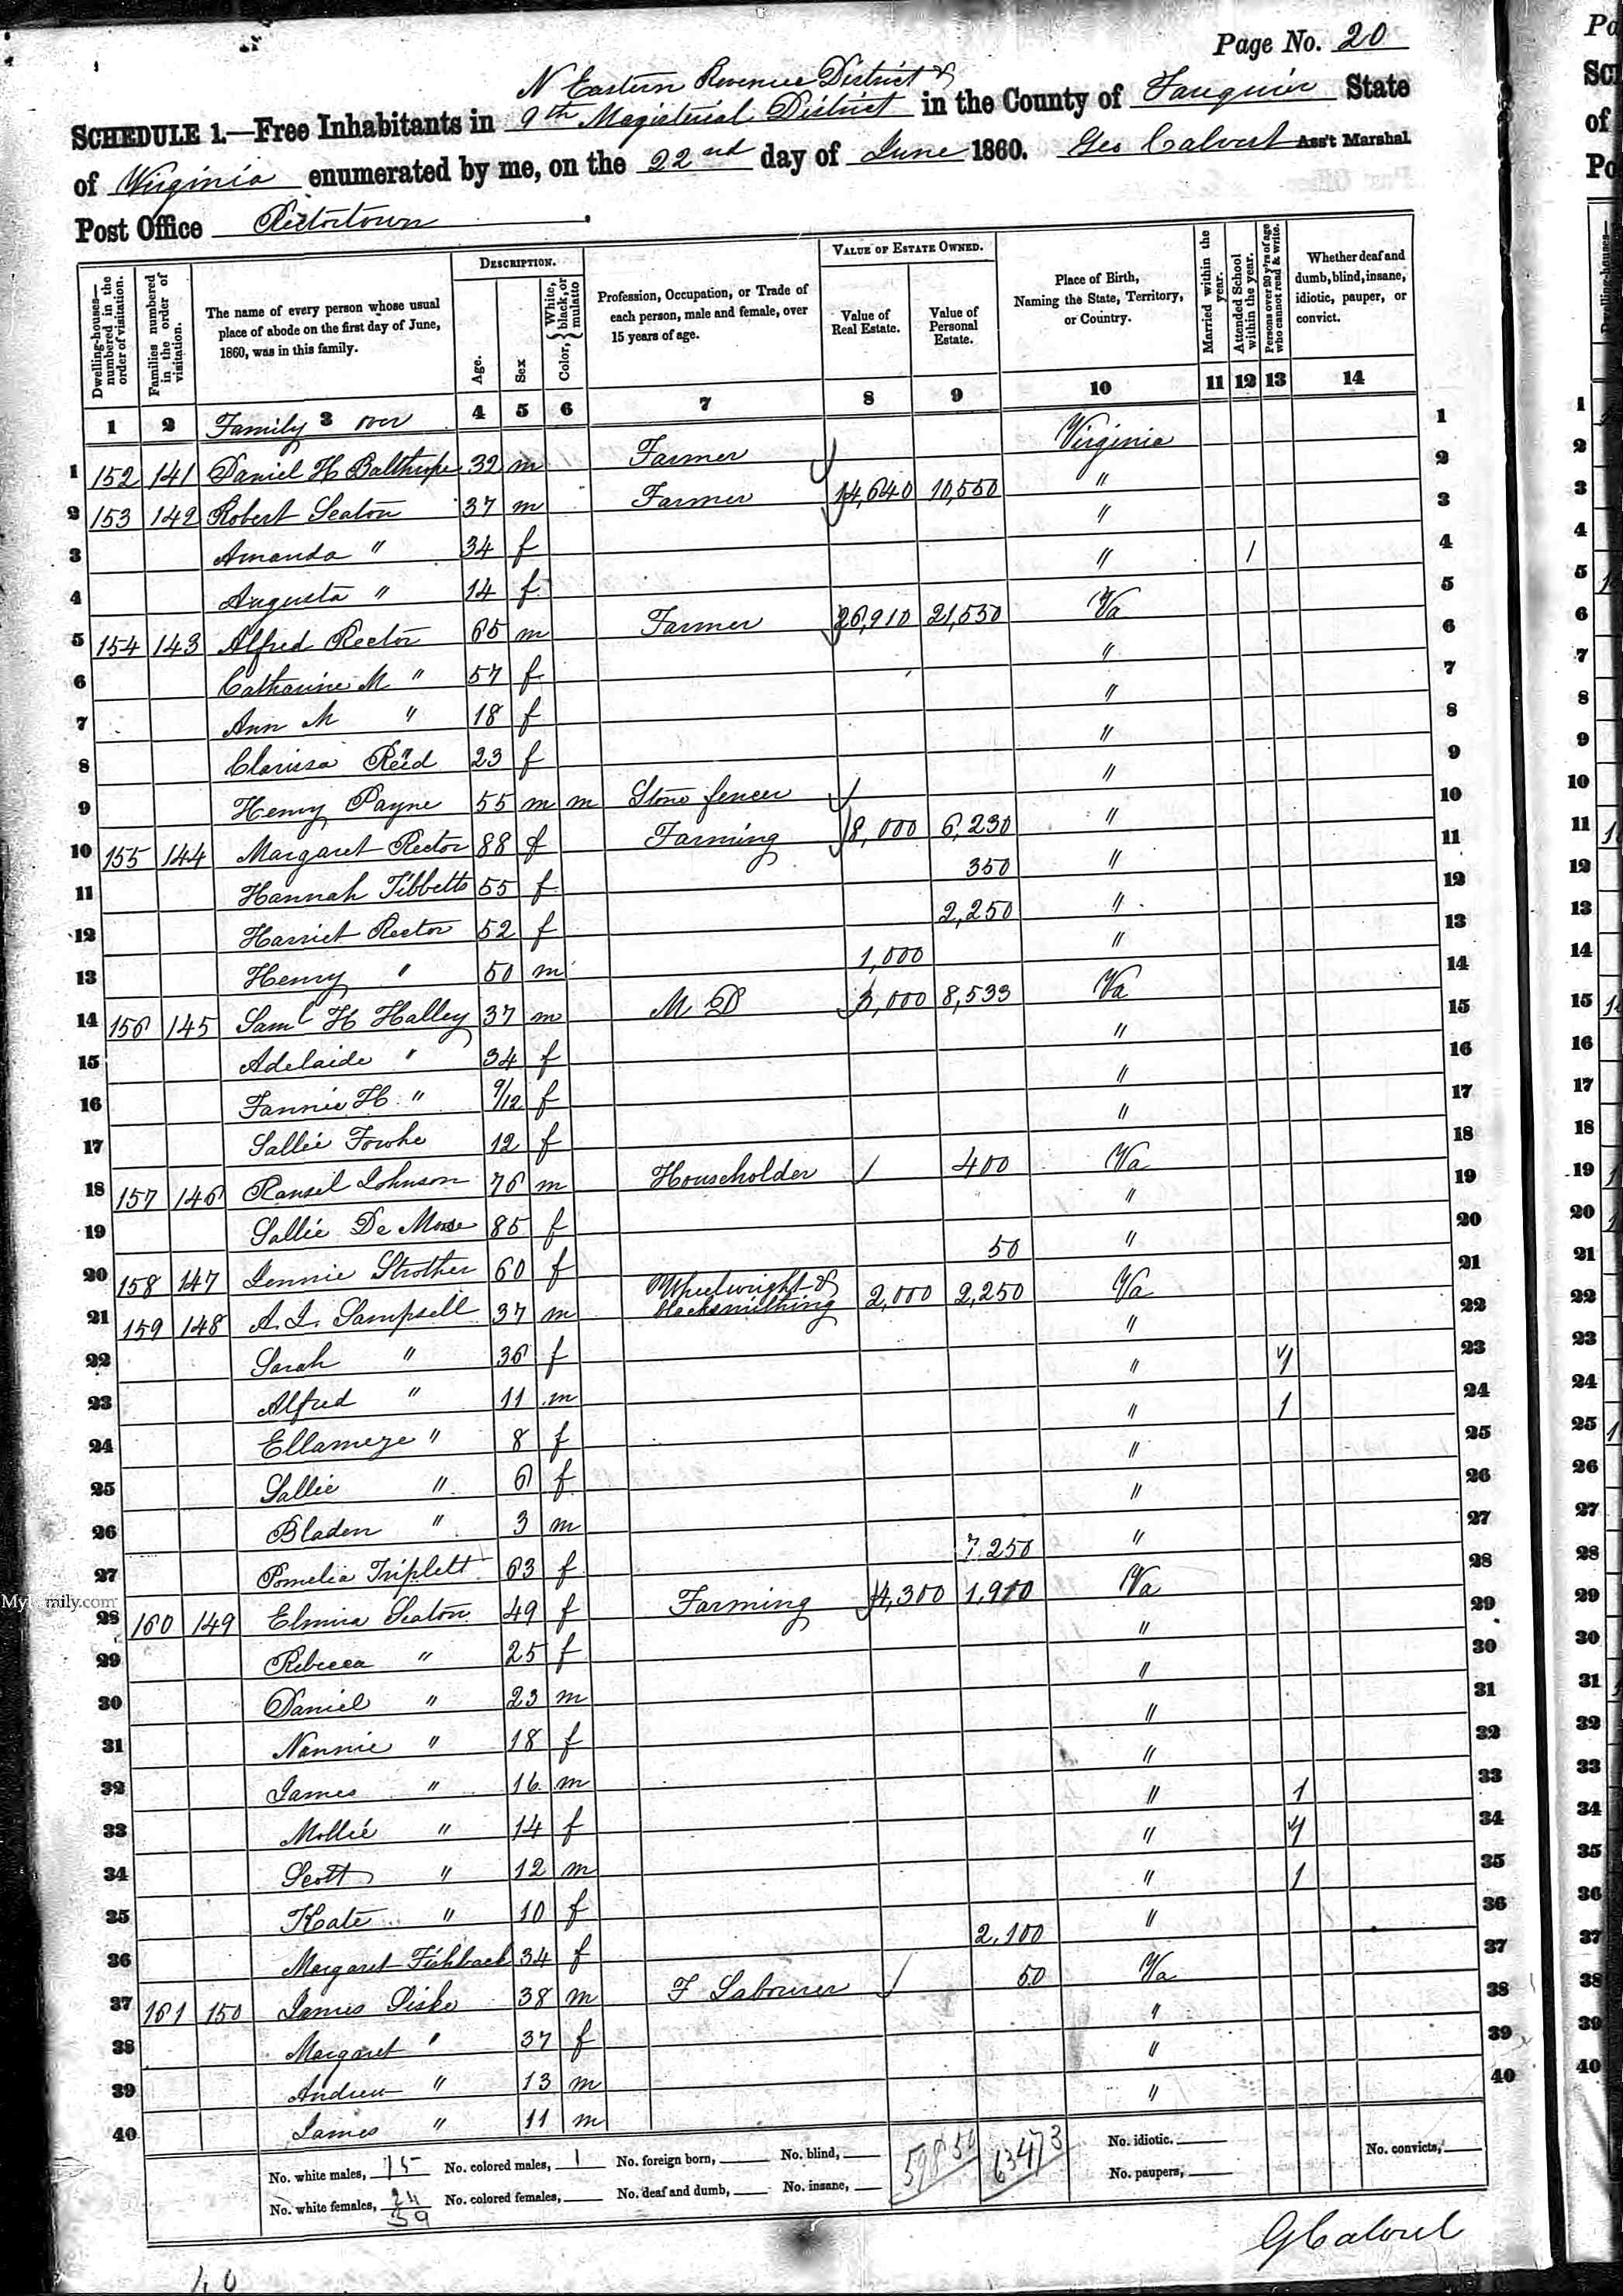 Page No. 20
N Eastern Revenue District &
SCHEDULE 1.—Free Inhabitants in 9th Magisterial District in the County of Fauquier State
of Virginia enumerated by me, on the 22nd day of June 1860. Geo Calvert Ass't Marshal
Post Office Rectortown.
Dwelling-houses—numbered in the order of visitation. Families numbered in the order of visitation. The name of every person whose usual place of abode on the first day of June, 1860, was in this family. DESCRIPTION. Age. Sex Color, White, black, or mulatto Profession, Occupation, or Trade of each person, male and female, over 15 years of age. VALUE OF ESTATE OWNED. Value of Real Estate. Value of Personal Estate. Place of Birth, Naming the State, Territory, or Country. Married within the year. Attended School within the year. Persons over 20 y'rs of age who cannot read & write. Whether deaf and dumb, blind, insane, idiotic, pauper, or convict.
1 2 3 4 5 6 7 8 9 10 11 12 13 14
Family over
1 152 141 Daniel H Balthrope 32 m Farmer Virginia 1
2 153 142 Robert Seaton 37 m Farmer 14,640 10,550 " 2
3 Amanda " 34 f " 3
4 Augusta " 14 f " 1 4
5 154 143 Alfred Rector 65 m Farmer 26,910 21,530 Va 5
6 Catharine M " 57 f " 6
7 Ann M " 18 f " 7
8 Clarissa Reed 23 f " 8
9 Henry Payne 55 m m Stone fencer " 9
10 155 144 Margaret Rector 88 f Farming 8,000 6,230 " 10
11 Hannah Tibbetts 55 f 350 " 11
12 Harriet Rector 52 f 2,250 " 12
13 Henry " 50 m 1,000 " 13
14 156 145 Saml H Halley 37 m M D 3,000 8,533 Va 14
15 Adelaide " 34 f " 15
16 Fannie H " 9/12 f " 16
17 Sallie Fowke 12 f " 17
18 157 146 Ransel Johnson 76 m Householder 400 Va 18
19 Sallie De Morse 85 f " 19
20 158 147 Jennie Strother 60 f 50 " 20
21 159 148 A. J. Sampsell 37 m Wheelwright & blacksmithing 2,000 2,250 Va 21
22 Sarah " 36 f " 22
23 Alfred " 11 m " 1 23
24 Ellameze " 8 f " 1 24
25 Sallie " 6 f " 25
26 Bladen " 3 m " 26
27 Pomelia Triplett 63 f 7,250 " 27
28 160 149 Elmira Seaton 49 f Farming 4,300 1,910 Va 28
29 Rebecca " 25 f " 29
30 Daniel " 23 m " 30
31 Nannie " 18 f " 31
32 James " 16 m " 32
33 Mollie " 14 f " 1 33
34 Scott " 12 m " 1 34
35 Kate " 10 f " 1 35
36 Margaret Fishback 34 f 2,100 " 36
37 161 150 James Piske 38 m F Labourer 50 Va 37
38 Margaret " 37 f " 38
39 Andrew " 13 m " 39
40 James " 11 m " 40
No. white males, 15 No. colored males, 1 No. foreign born, No. blind, 59850 63473 No. idiotic. No. convicts,
No. white females, 24 No. colored females, No. deaf and dumb, No. insane, No. paupers,
39
G Calvert
40
MyFamily.com